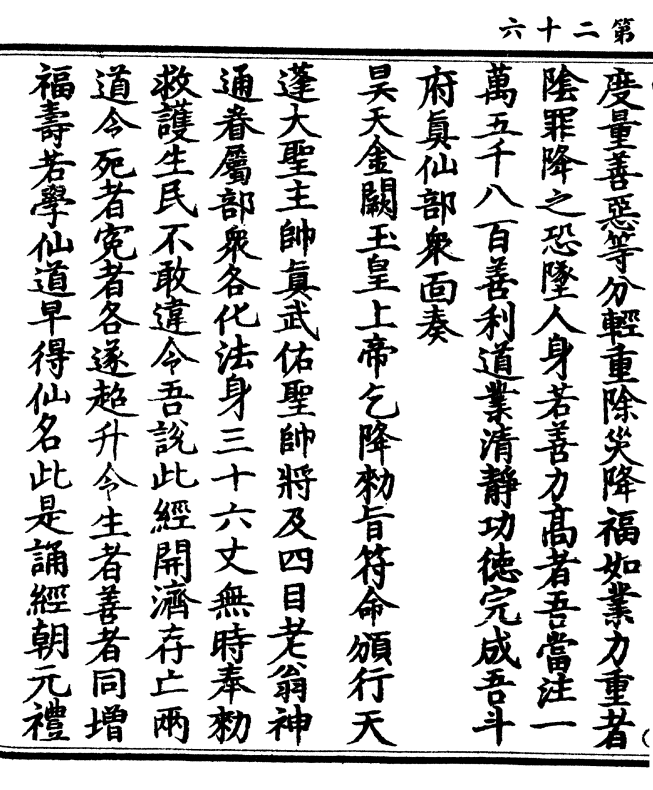 第二十六
度量善惡等分輕重除災降福如業力重者
陰罪降之恐墜人身若善力髙者吾當注一
萬五千八百善利道業清靜功德完成吾斗
府眞仙部衆面奏
昊天金闕玉皇上帝乞降勑旨符命頒行天
蓬大聖主帥眞武佑聖帥將及四目老翁神
通眷屬部衆各化法身三十六丈無時奉勑
救護生民不敢違令吾說此經開濟存亡兩
道令死者寃者各遂超升令生者善者同增
福壽若學仙道早得仙名此是誦經朝元禮